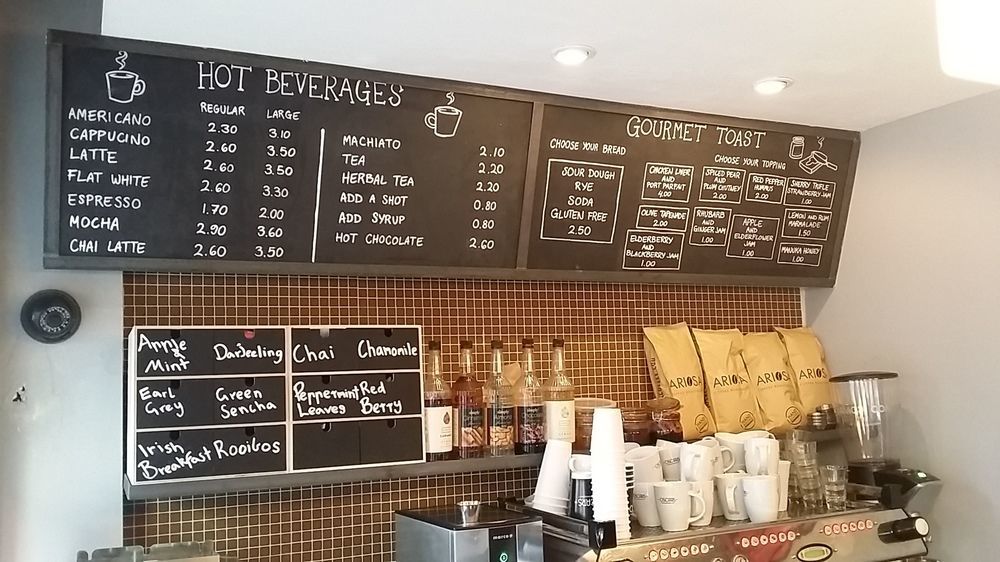 HOT BEVERAGES
REGULAR LARGE
AMERICANO 2.30 3.10
CAPPUCINO 2.60 3.50
LATTE 2.60 3.50
FLAT WHITE 2.60 3.30
ESPRESSO 1.70 2.00
MOCHA 2.90 3.60
CHAI LATTE 2.60 3.50
MACHIATO 2.10
TEA 2.20
HERBAL TEA 2.20
ADD A SHOT 0.80
ADD SYRUP 0.80
HOT CHOCOLATE 2.60
GOURMET TOAST
CHOOSE YOUR BREAD
SOUR DOUGH
RYE
SODA
GLUTEN FREE
2.50
CHOOSE YOUR TOPPING
CHICKEN LIVER
AND
PORT PARFAIT
4.00
SPICED PEAR
AND
PLUM CHUTNEY
2.00
RED PEPPER
HUMMUS
2.00
SHERRY TRIFLE
STRAWBERRY JAM
1.00
OLIVE TAPENADE
2.00
RHUBARB
AND
GINGER JAM
1.00
APPLE
AND
ELDERFLOWER
JAM
1.00
LEMON AND RUM
MARMALADE
1.50
ELDERBERRY
AND
BLACKBERRY JAM
1.00
MANUKA HONEY
1.00
Apple
&
Mint
Darjeeling
Chai
Chamonile
Earl
Grey
Green
Sencha
Peppermint
Leaves
Red
Berry
Irish
Breakfast
Rooibos
simply
simply
simply
ARIOSA
ARIOSA
ARIOSA
ARIOSA
marco